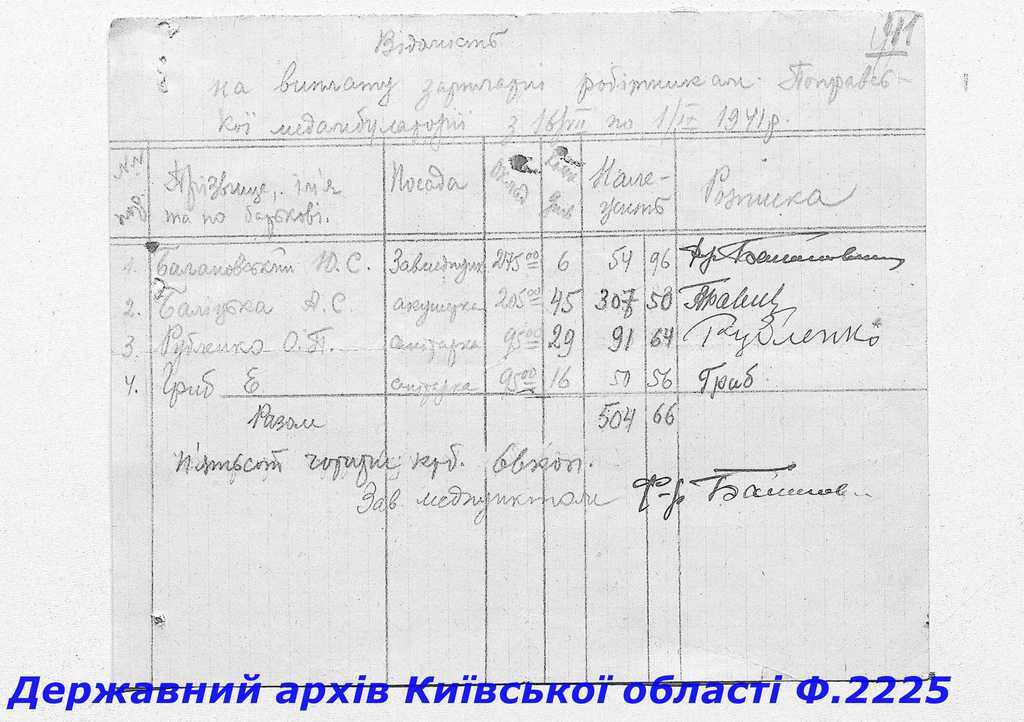 Відомість
на виплату зарплатні робітникам Поправсь-
кої медамбулаторії з 16/VIII по 1/IX 1941 р.
Прізвище, ім'я та по батькові. Посада Оклад днів Нале-жить Розписка
1. Балановський Ю.С. Завмедпунк 275 00 6 54 96
2. А.С. акушерка 205 00 45 307 50
3. Рубленко О.П. санітарка 95 00 29 91 64 Рубленко
4. Гриб Е санітарка 95 00 16 50 56 Гриб
Разом 504 66
п'ятьсот чотири крб. 66 коп.
Зав медпунктом
Державний архів Київської області Ф.2225